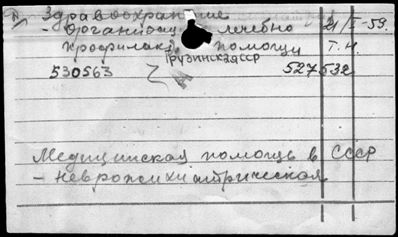 Здравоохранение
- организац лечебно 21/I-59.
профилакт помощи Т.Н.
Грузинская ССР
530563 527532
Медицинская помощь в СССР
- невропсихиатрическая